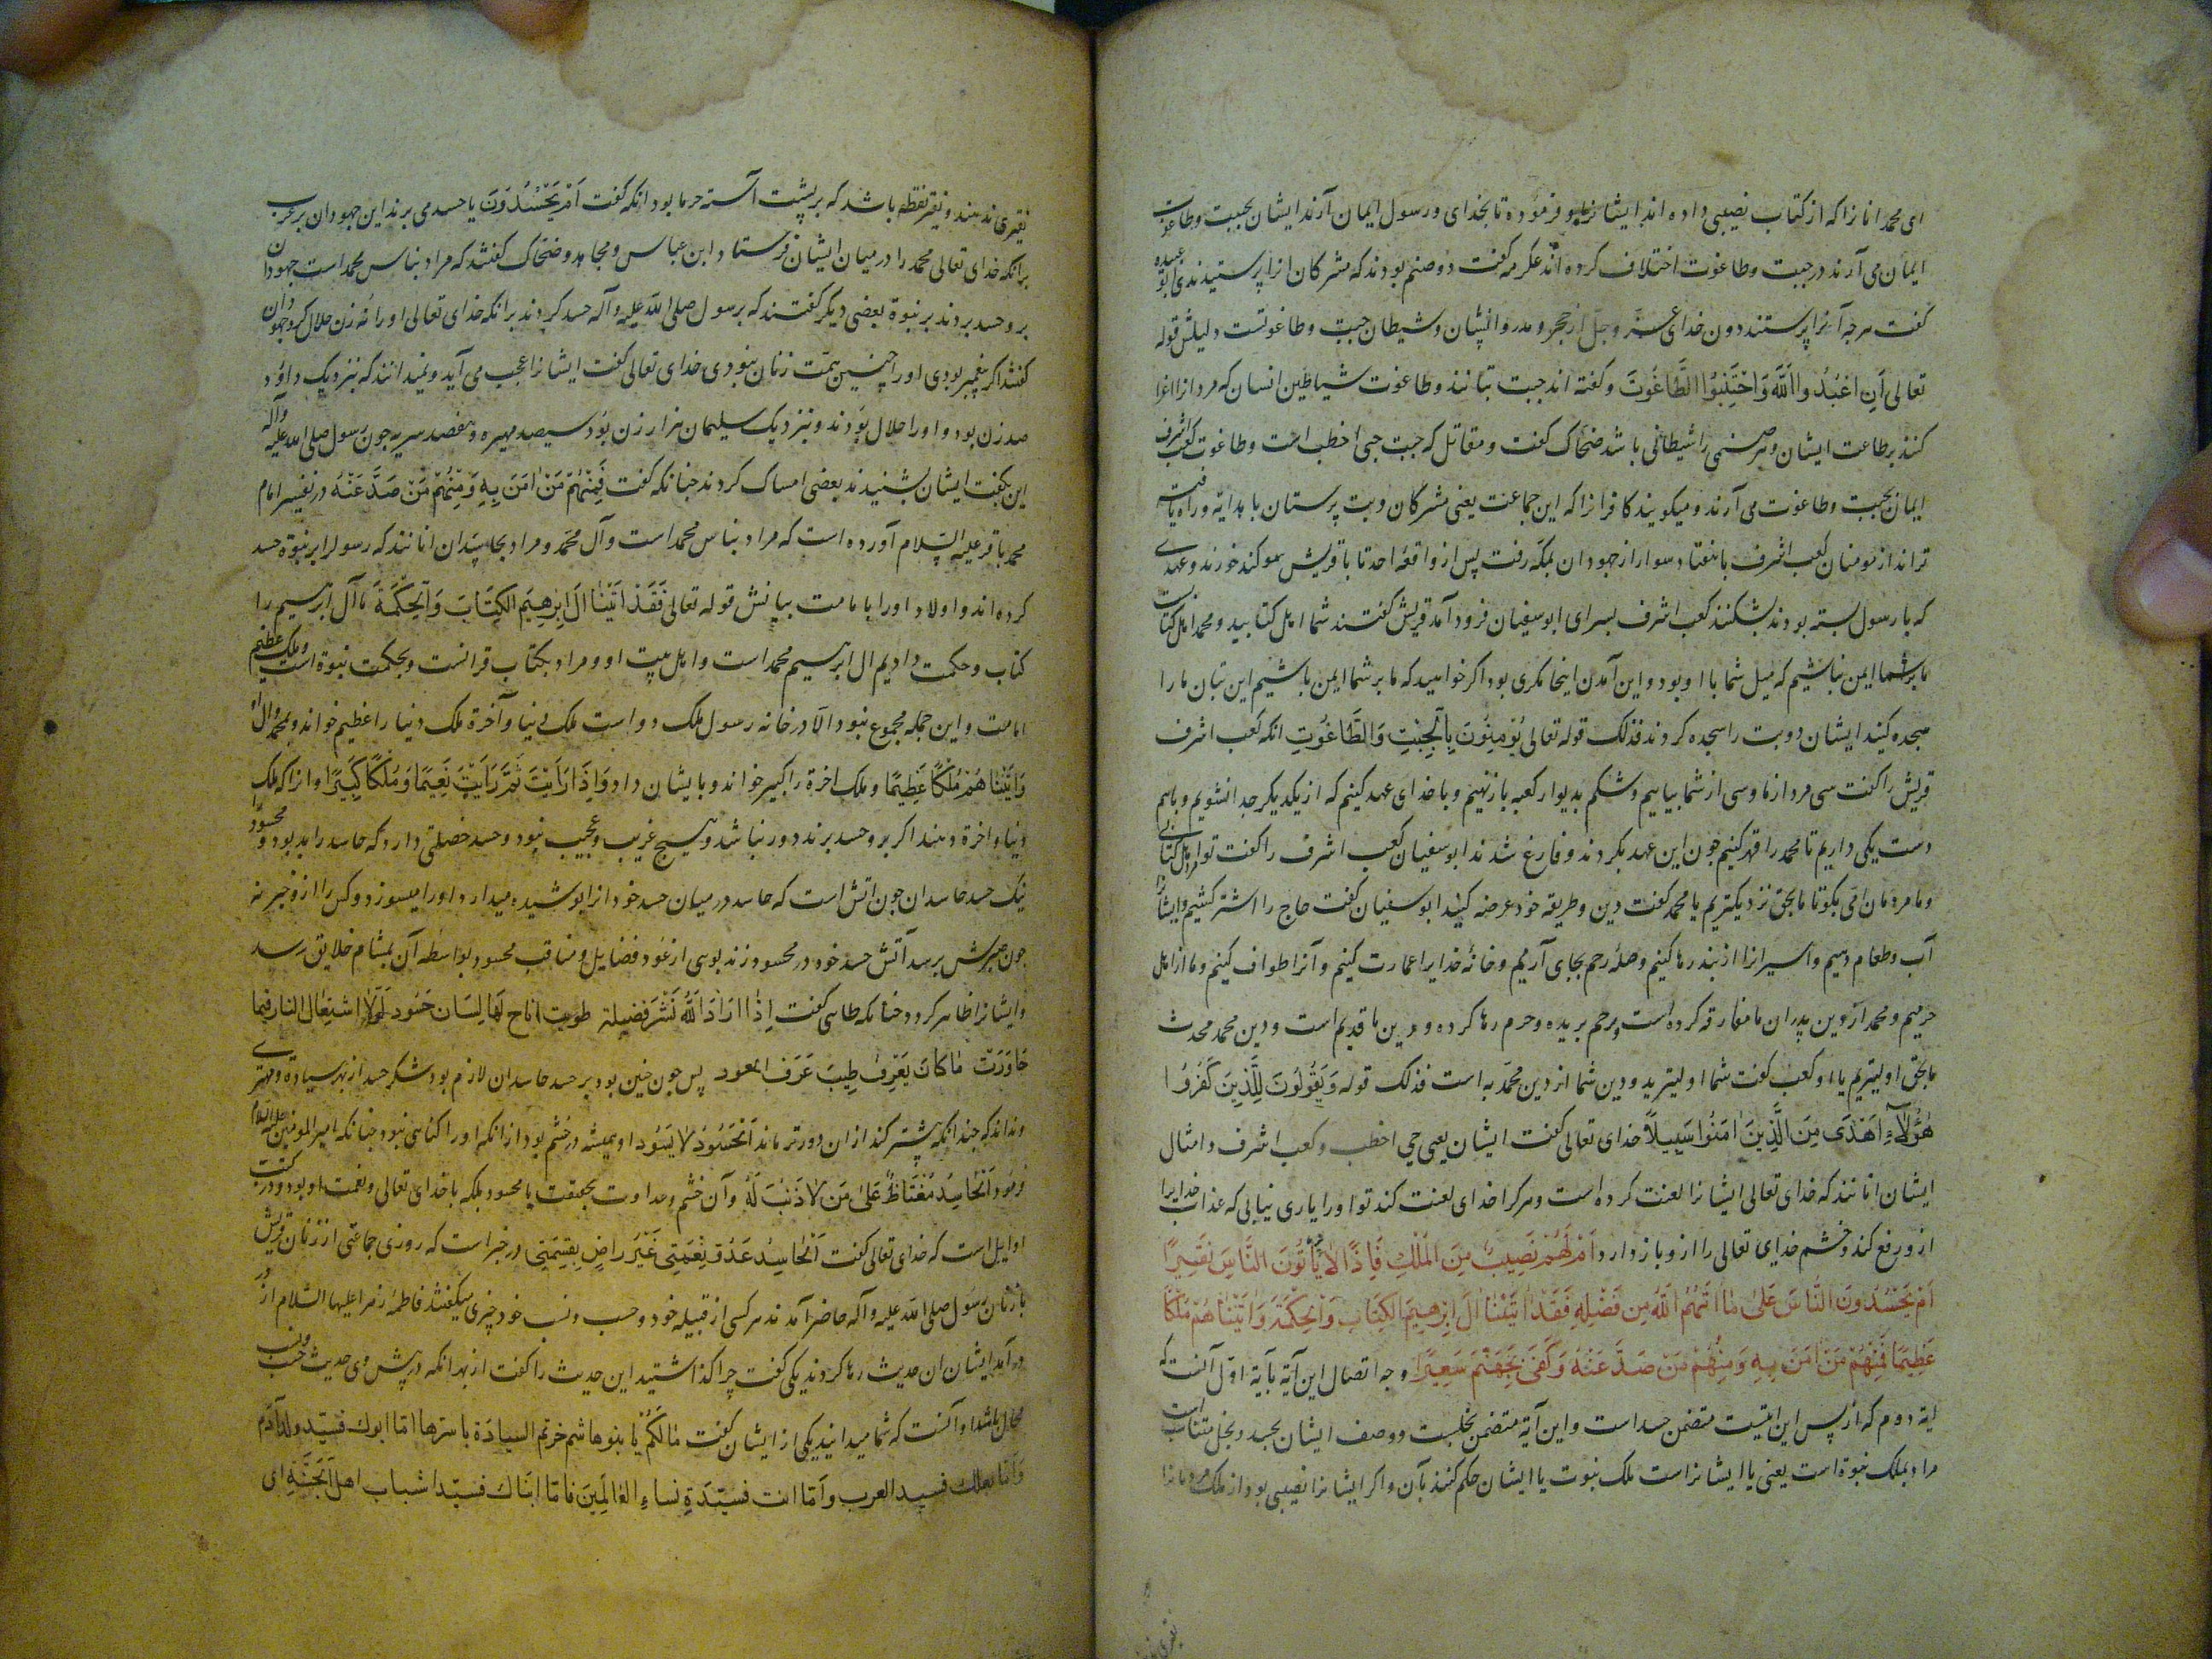 ای محمد انانرا که از کتاب نصیبی داده اند ایشانرا و فرموده تا بخدای و رسول ایمان آرند ایشان بجبت و طاغوت
ایمان می آرند در جبت و طاغوت اختلاف کرده اند عکرمه گفت دو صنم بودند که مشرکان انرا پرستیدندی ابو عبیده
گفت هرچه آنرا پرستند دون خدای عز وجل از حجر و مدر و انسان و شیطان جبت و طاغوتست دلیلش قوله
تعالی اَنِ اعْبُدُوا اللّٰهَ وَاجْتَنِبُوا الطَّاغُوتَ و گفته اند جبت بتانند و طاغوت شیاطین انسان که مردانرا اغرا
کنند بر طاعت ایشان و هر صنمی را شیطانی باشد ضحاک گفت و مقاتل که جبت حیی اخطب است و طاغوت کعب اشرف
ایمان بجبت و طاغوت می آرند و میکویند کافرانرا که این جماعت یعنی مشرکان و بت پرستان با هدایة و راه یافته
تراند از مومنان کعب اشرف با هفتاد سوار از جهودان بمکه رفت پس از واقعه احد تا با قریش سوکند خورند و عهدی
که با رسول بسته بودند بشکنند کعب اشرف بسرای ابوسفیان فرود آمد قریش گفتند شما اهل کتابید و محمد اهل کتابست
ما بر شما ایمن نباشیم که میل شما با او بود و این آمدن اینجا مکری بود اکر خواهید که ما بر شما ایمن باشیم این بتان ما را
سجده کنید ایشان دو بت را سجده کردند فذلک قوله تعالی یُؤمِنُونَ بِالْجِبْتِ وَالطَّاغُوتِ انکه کعب اشرف
قریش را گفت سی مرد از ما و سی از شما بیاییم و شکم بدیوار کعبه باز نهیم و با خدای عهد کنیم که از یکدیکر جدا نشویم و باهم
دست یکی داریم تا محمد را قهر کنیم جون این عهد بکردند و فارغ شدند ابوسفیان کعب اشرف را گفت تو مرد اهل کتابی
و ما مردمان امی بکو تا ما بحق نزدیکتریم یا محمد گفت دین و طریقه خود عرضه کنید ابوسفیان گفت حاج را اشتر کشیم و ایشانرا
آب و طعام دهیم و اسیرانرا از بند رها کنیم و صله رحم بجای آریم و خانه خدایرا عمارت کنیم و آنرا طواف کنیم و ما از اهل
حرمیم و محمد از دین پدران ما مفارقه کرده است و رحم بریده و حرم رها کرده و دین ما قدیم است و دین محمد محدث
ما بحق اولیتریم یا او کعب گفت شما اولیترید و دین شما از دین محمد به است فذلک قوله وَیَقُولُونَ لِلَّذِینَ کَفَرُوا
هٰؤُلَاءِ اَهْدَی مِنَ الَّذِینَ اٰمَنُوا سَبِیلًا خدای تعالی گفت ایشان یعنی حیی اخطب و کعب اشرف و امثال
ایشان انانند که خدای تعالی ایشانرا لعنت کرده است و هرکرا خدای لعنت کند تو او را یاری نیابی که عذاب خدایرا
ازو رفع کند و خشم خدای تعالی را ازو باز دارد اَمْ لَهُمْ نَصِیبٌ مِنَ الْمُلْکِ فَاِذًا لَا یُؤْتُونَ النَّاسَ نَقِیرًا
اَمْ یَحْسُدُونَ النَّاسَ عَلیٰ مَا اٰتٰهُمُ اللّٰهُ مِن فَضْلِهِ فَقَدْ اٰتَیْنَا اٰلَ اِبْرٰهِیمَ الْکِتَابَ وَالْحِکْمَةَ وَاٰتَیْنَاهُمْ مُلْکًا
عَظِیمًا فَمِنْهُمْ مَنْ اٰمَنَ بِهِ وَمِنْهُمْ مَنْ صَدَّ عَنْهُ وَکَفَیٰ بِجَهَنَّمَ سَعِیرًا وجه اتصال این آیة بآیة اول آنست که
ایة دوم که از پس این ایتست متضمن حسد است و این آیة متضمن بخلست و وصف ایشان بحسد و بخل متناسب است
مراد بملک نبوة است یعنی یا ایشانراست ملک نبوت یا ایشان حکم کنند بآن و اکر ایشانرا نصیبی بود از ملک مردمانرا
نقیری ندهند و نقیر نقطه باشد که بر پشت آسته خرما بود انکه گفت اَمْ یَحْسُدُونَ یا حسد می برند این جهودان بر عرب
برانکه خدای تعالی محمد را در میان ایشان فرستاد ابن عباس و مجاهد و ضحاک گفتند که مراد بناس محمد است جهودان
برو حسد بردند بر نبوة بعضی دیکر گفتند که بر رسول صلی الله علیه و آله حسد کردند برانکه خدای تعالی او را نه زن حلال کرد جهودان
گفتند اکر پیغمبر بودی او را چنین همت زنان نبودی خدای تعالی گفت ایشانرا عجب می آید و نمیدانند که نزدیک داود
صد زن بود و او را حلال بودند و نزدیک سلیمان هزار زن بود سیصد مهیره و هفصد سریه جون رسول صلی الله علیه وآله
این بگفت ایشان بشنیدند بعضی امساک کردند جنانکه گفت فَمِنْهُمْ مَنْ اٰمَنَ بِهِ وَمِنْهُمْ مَنْ صَدَّ عَنْهُ در تفسیر امام
محمد باقر علیه السلام آورده است که مراد بناس محمد است و آل محمد و مراد بحاسدان انانند که رسولرا بر نبوة حسد
کرده اند و اولاد او را با مامت بیانش قوله تعالی فَقَدْ اٰتَیْنَا اٰلَ اِبْرٰهِیمَ الْکِتَابَ وَالْحِکْمَةَ ما آل ابرهیم را
کتاب و حکمت دادیم ال ابرهیم محمد است و اهل بیت او و مراد بکتاب قرانست و بحکمت نبوة است و ملک عظیم
امامت و این جمله مجموع نبود الا در خانه رسول ملک دو است ملک دنیا و آخرة ملک دنیا را عظیم خواند و بمحمد و ال او
وَاٰتَیْنَاهُمْ مُلْکًا عَظِیمًا و ملک اخرة را کبیر خواند و بایشان داد وَاِذَا رَاَیْتَ ثَمَّ رَاَیْتَ نَعِیمًا وَمُلْکًا کَبِیرًا و انرا که ملک
دنیا و اخرة دهند اکر برو حسد برند دور نباشد و هیچ غریب و عجیب نبود و حسد خصلتی دارد که حاسد را بد بود و محسود را
نیک حسد حاسدان جون اتش است که حاسد در میان حسد خود انرا پوشیده میدارد و او را میسوزد و کس را ازو خبر نه
جون صبرش برسد آتش حسد خود در محسود زند بوی از عود فضایل و مناقب محسود بواسطه آن بمشام خلایق رسد
و ایشانرا ظاهر کردد جنانکه طایی گفت اِذَا اَرَادَ اللّٰهُ نَشْرَ فَضِیلة طویت اتاح لَهَا لِسَان حَسُود لَوْلَا اشتِعَال النار فیما
جَاوَرَت مَا کَانَ یَعْرِفُ طِیبَ عَرَف العود پس جون جنین بود بر حسد حاسدان لازم بود شکر حسد از بهر سیاده و مهتری
و نداند که جندانکه بیشتر کند ازان دورتر ماند اَلْحَسُودُ لَا یَسُود او همیشه در خشم بود از انکه او را کناهی نبود جنانکه امیر المومنین علیه السلام
فرمود اَلْحَاسِدُ مُغْتَاظٌ عَلیٰ مَن لَا ذَنْبَ لَهُ و آن خشم و عداوت بحقیقت با محسود بلکه با خدای تعالی و نعمت او بود و در کتب
اوایل است که خدای تعالی گفت اَلْحَاسِدُ عَدُوُّ نِعْمَتِی غَیْرُ رَاضٍ بِقِسْمَتِی در خبر است که روزی جماعتی از زنان قریش
با زنان رسول صلی الله علیه و آله حاضر آمدند هر کسی از قبیله خود و حسب و نسب خود چیزی میگفتند فاطمه زهرا علیها السلام از در
درآمد ایشان ان حدیث رها کردند یکی گفت چرا گذاشتید این حدیث را گفت از بهر انکه در پیش وی حدیث حسب و نسب
محال باشد او آنست که شما میدانید یکی از ایشان گفت مَا لَکُمْ یَا بنو هاشم حزتم السیادة باسرها اَمَّا ابوک فسیّد ولد آدم
وَاَمَّا بعلک فسید العرب وَاَمَّا انت فسیّدة نساء العَالَمِینَ فَامّا ابناک فسیّدا شباب اهل الْجَنَّةِ ای